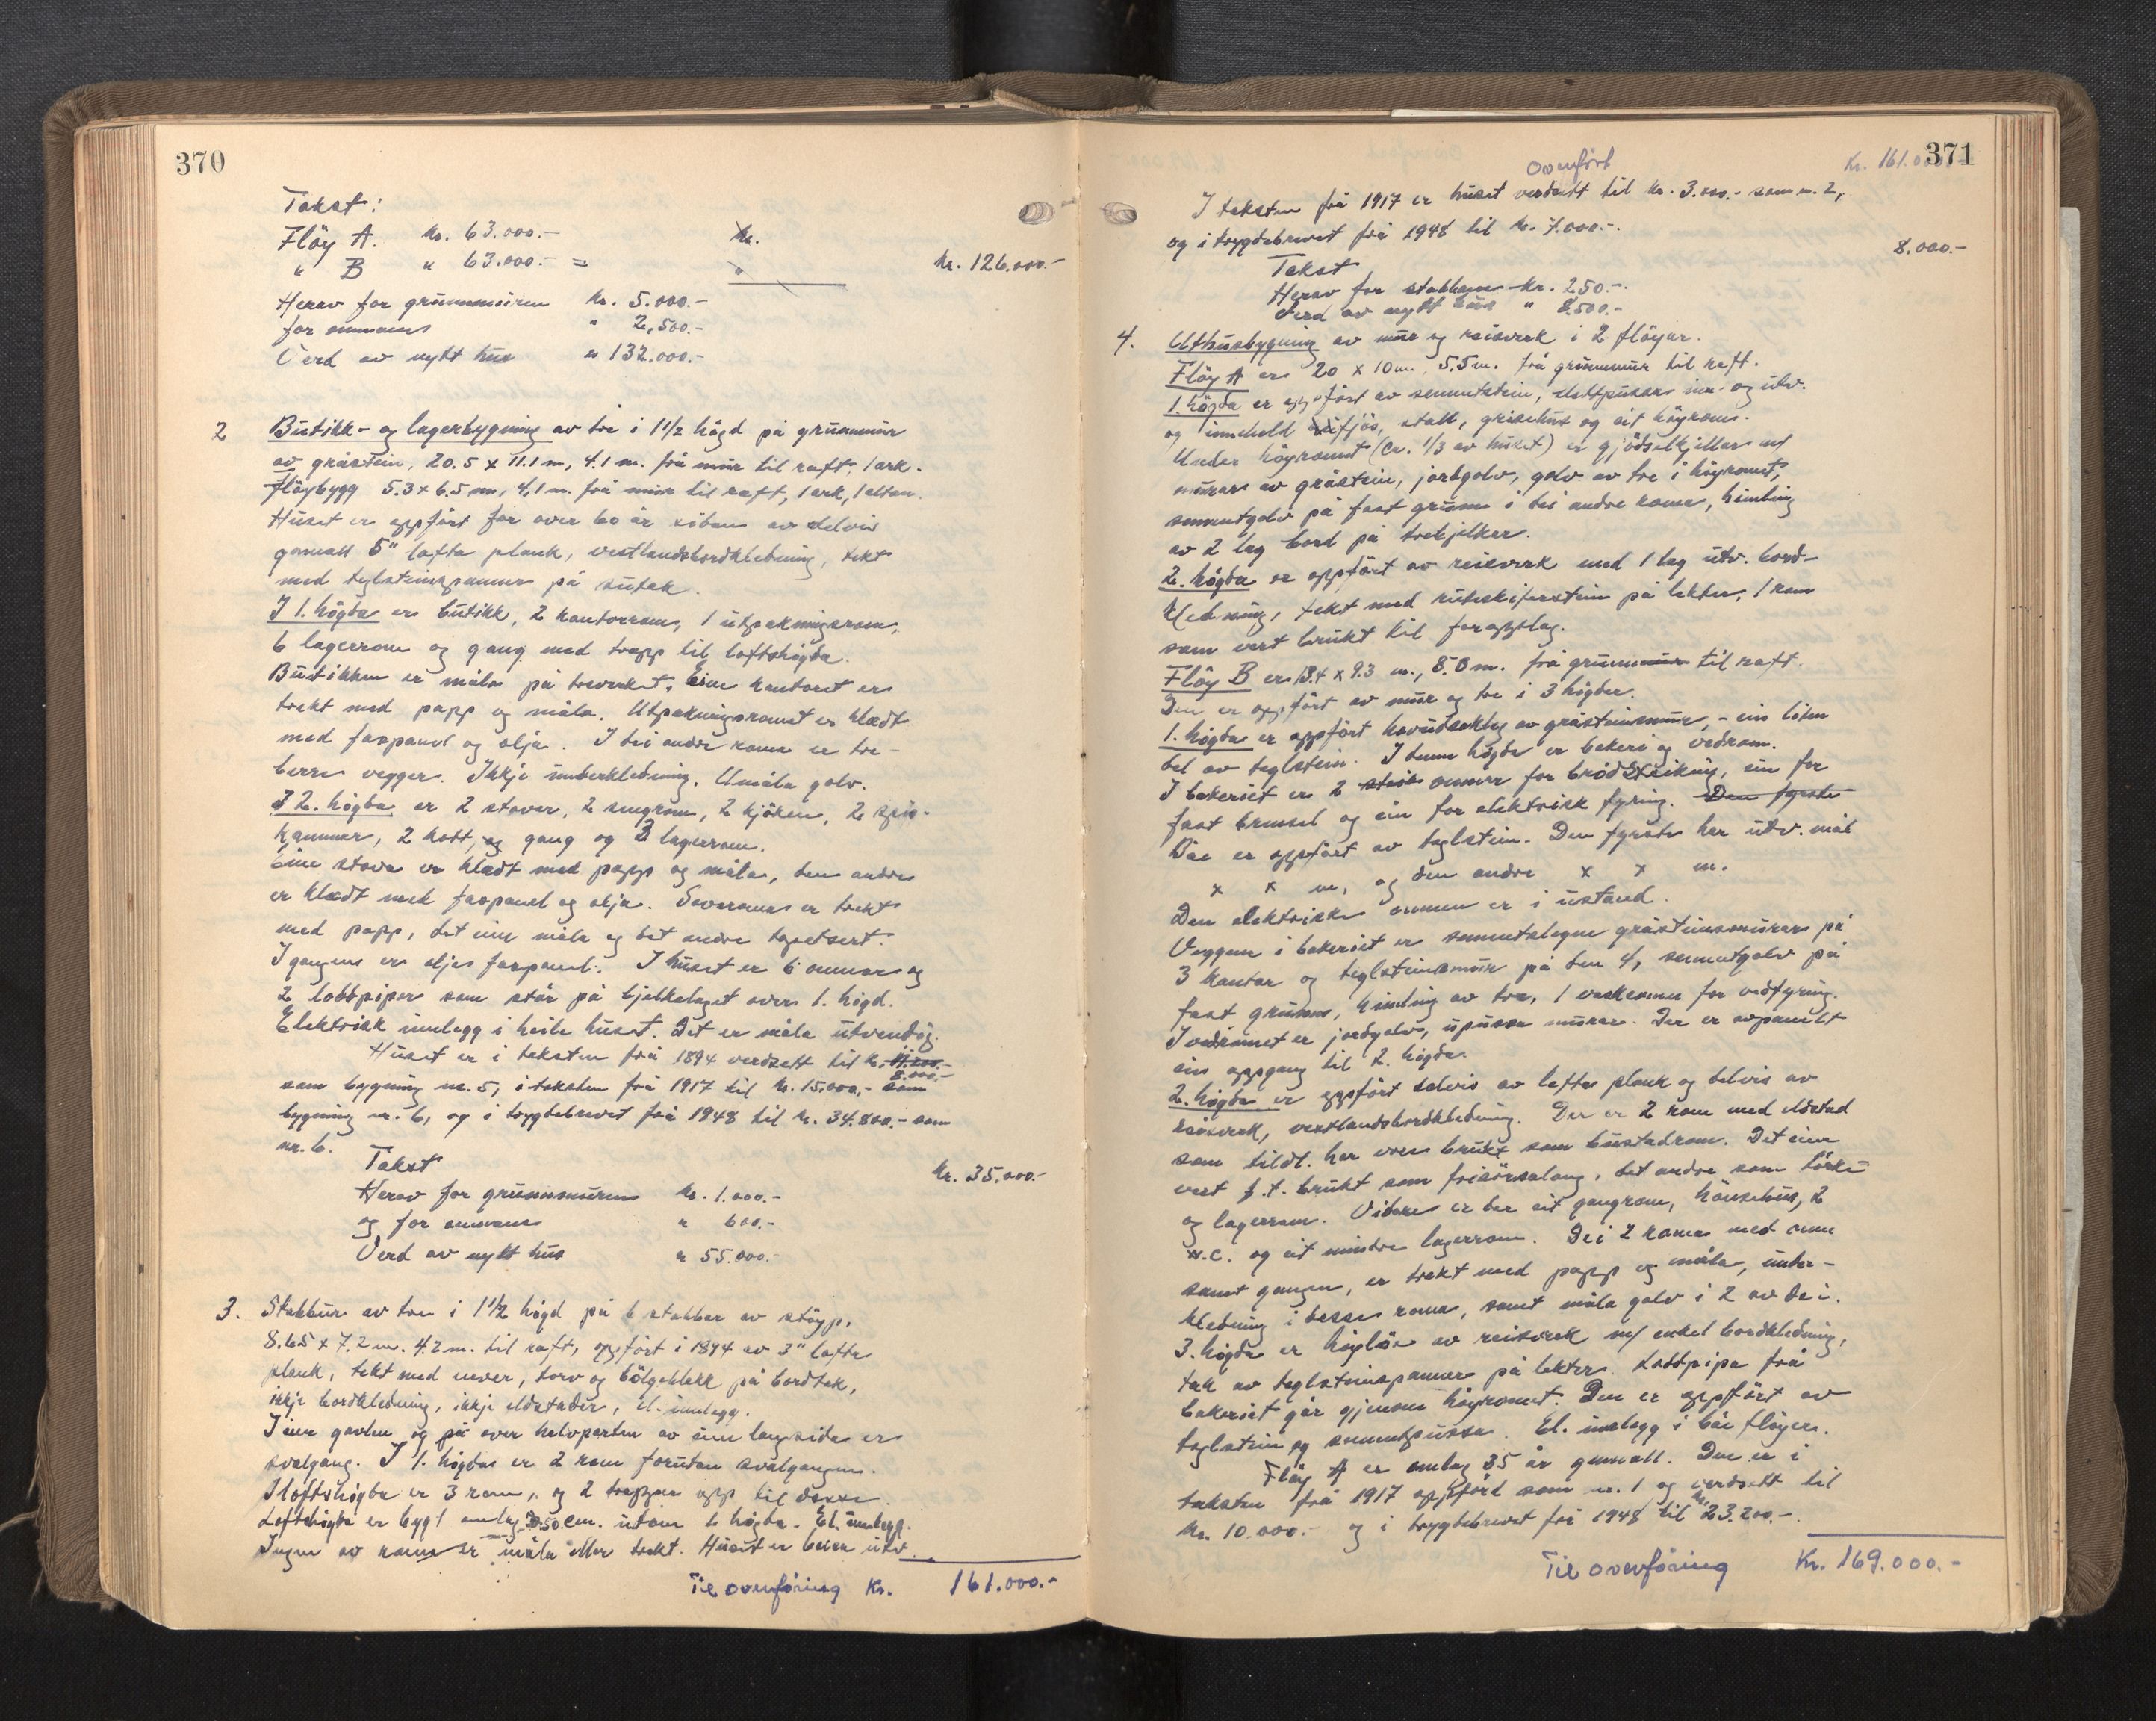 370
Takst:
Fløy A. kr. 63.000.-
" B " 63.000.- =
kr.
"
kr. 126.000.-
Herav for grunnmuren kr. 5.000.-
for omnane " 2,500.-
Verd av nytt hus " 132.000.-
2 Butikk- og lagerbygning av tre i 1 1/2 høgd på grunnmur
av gråstein, 20.5 x 11.1 m, 4.1 m. frå mur til raft, 1 ark.
Fløybygg 5.3 x 6.5 m, 4,1 m. frå mur til raft, 1 ark, 1 altan.
Huset er oppført for over 60 år siden av delvis
gamall 5" lafta plank, vestlandsbordkledning, tekt
med teglsteinspanner på sutak.
I 1. høgda er butikk, 2 kontorrom, 1 utpakningsrom,
6 lagerrom og gang med trapp til loftshøgda.
Butikken er måla på treverket. Eine kontoret er
trekt med papp og måla. Utpakningsromet er kledt
med faspanel og olja. I dei andre roma er tre-
berre vegger. Ikkje underkledning. Umåla golv.
I 2. høgda er 2 stover, 2 sengrom, 2 kjøken, 2 spis-
kammer, 2 kott, og gang og 3 lagerrom.
Eine stova er kledt med papp og måla, den andre
er kledt med faspanel og olja. Soveroma er trekt
med papp, det eine måla og det andre tapetsert.
I gangen er olja faspanel. I huset er 6 omnar og
2 loddpiper som står på bjelkelaget over 1. høgd.
Elektrisk innlegg i heile huset. Det er måla utvendig.
Huset er i taksten frå 1894 verdsett til kr.
8.000.-
som bygning nr. 5, i taksten frå 1917 til kr. 15.000,- som
bygning nr. 6, og i trygdebrevet frå 1948 til kr. 34.800.- som
nr. 6.
Takst
kr. 35.000.-
Herav for grunnmuren kr. 1.000.-
og for omnane " 600.-
Verd av nytt hus " 55.000.-
3. Stabbur av tre i 1 1/2 høgd på 6 stabbar av støyp,
8.65 x 7.2 m. 4.2 m. til raft, oppført i 1894 av 3" lafta
plank, tekt med never, torv og bølgeblekk på bordtak,
ikkje bordkledning, ikkje eldstader, el. innlegg.
I eine gavlen og på over halvparten av eine langsida er
svalgang. I 1. høgda er 2 rom forutan svalgangen.
I loftshøgda er 3 rom, og 2 trapper opp til desse.
Loftshøgda er bygt omlag 50 cm. utom 1. høgda. El. innlegg.
Ingen av roma er måla eller trekt. Huset er beisa utv.
Til overføring Kr. 161.000.-
371
Overført Kr. 161.000.-
I taksten frå 1917 er huset verdsett til kr. 3.000.- som nr. 2,
og i trygdebrevet frå 1948 til kr. 7.000.-.
Takst
8.000.-
Herav for stabbane kr. 250.-.
Verd av nytt hus " 8.500.-
4. Uthusbygning av mur og reisverk i 2 fløyar.
Fløy A er 20 x 10 m. 5.5 m. frå grunnmur til raft.
1. høgda er oppført av sementstein, slettpussa inn- og utv.
og inneheld fjøs, stall, grisehus og eit høyrom.
Under høyromet (ca. 1/3 av huset) er gjødselkjellar m/
murar av gråstein, jordgolv, golv av tre i høyromet,
sementgolv på fast grunn i dei andre roma, himling
av 2 lag bord på trebjelker.
2. høgda er oppført av reisverk med 1 lag utv. bord-
kledning, tekt med ruteskiferstein på lekter, 1 rom
som vert brukt til foropplag.
Fløy B er 13.4 x 9.3 m., 8.0 m. frå grunnmur til raft.
Den er oppført av mur og tre i 3 høgder.
1. høgda er oppført hovudsakleg av gråsteinsmur, - ein liten
del av teglstein. I denne høgda er bakeri og vedrom.
I bakeriet er 2 omnar for brødsteiking, ein for
fast brensel og ein for elektrisk fyring. Den fyrste
Båe er oppført av teglstein. Den fyrste har utv. mål
x x m, og den andre x x m.
Den elektriske omnen er i ustand.
Veggen i bakeriet er sementslegne gråsteinsmurar på
3 kantar og teglsteinsmur på den 4, sementgolv på
fast grunn, himling av tre, 1 vaskeomn for vedfyring.
I vedrommet er jordgolv, upussa murar. Der er avpanelt
ein oppgang til 2. høgda.
2. høgda er oppført delvis av lafta plank og delvis av
reisverk, vestlandsbordkledning. Der er 2 rom med eldstad
som tildl. har vore brukt som bustadrom. Det eine
vert f.t. brukt som frisørsalong, det andre som tørke-
og lagerrom. Vidare er der eit gangrom, hønsehus, 2
w.c. og eit mindre lagerrom. Dei 2 roma med omn
samt gangen, er trekt med papp og måla, under-
kledning i desse roma, samt måla golv i 2 av dei.
3. høgda er høyløe av reisverk m/ enkel bordkledning,
tak av teglsteinspanner på lekter. Loddpipa frå
bakeriet går gjennom høyromet. Den er oppført av
teglstein og sementpussa. El. innlegg i båe fløyer.
Fløy A er omlag 35 år gamall. Den er i
taksten frå 1917 oppførd som nr. 1 og verdsett til
kr. 10.000.- og i trygdebrevet frå 1948 til kr. 23.200.-.
Til overføring Kr. 169.000.-